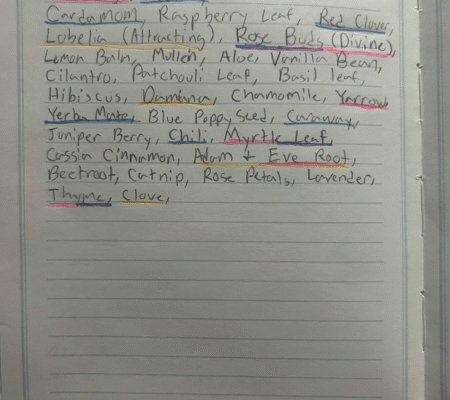 Cardamom, Raspberry Leaf, Red Clover,
Lobelia (Attracting), Rose Buds (Divine),
Lemon Balm, Mullein, Aloe, Vanilla Bean,
Cilantro, Patchouli Leaf, Basil leaf,
Hibiscus, Damiana, Chamomile, Yarrow
Yerba Mate, Blue Poppy Seed, Caraway,
Juniper Berry, Chili, Myrtle Leaf,
Cassia Cinnamon, Adam + Eve Root,
Beetroot, Catnip, Rose Petals, Lavender,
Thyme, Clove,